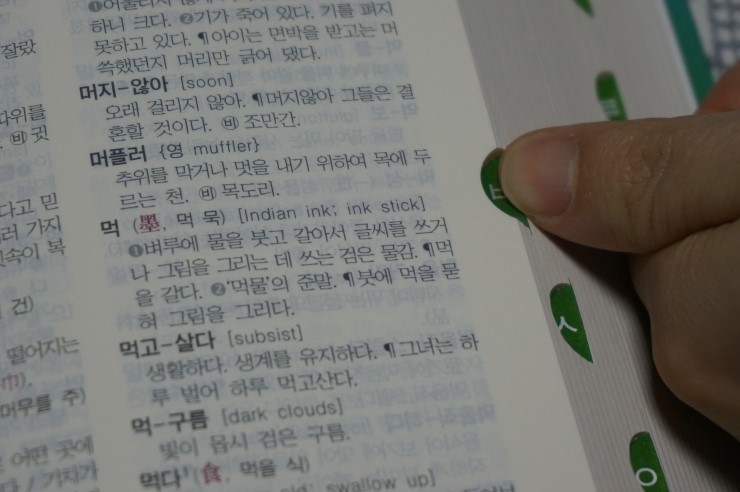 ❶어울리지 않게
하니 크다. ❷기가 죽어 있다. 기를 펴지
못하고 있다. ¶아이는 면박을 받고는 머
쓱했던지 머리만 긁어 댔다.
머지-않아 [soon]
오래 걸리지 않아. ¶머지않아 그들은 결
혼할 것이다. ㉥ 조만간.
머플러 {영 muffler}
추위를 막거나 멋을 내기 위하여 목에 두
르는 천. ㉥ 목도리.
먹 (墨, 먹 묵) [Indian ink; ink stick]
❶벼루에 물을 붓고 갈아서 글씨를 쓰거
나 그림을 그리는 데 쓰는 검은 물감. ¶먹
을 갈다. ❷‘먹물’의 준말. ¶붓에 먹을 묻
혀 그림을 그리다.
먹고-살다 [subsist]
생활하다. 생계를 유지하다. ¶그녀는 하
루 벌어 하루 먹고산다.
먹-구름 [dark clouds]
빛이 몹시 검은 구름.
먹다¹ (食, 먹을 식)
swallow up]
잘랐
따위를
㉥ 귓
다고 믿
러 가지
속이 복
건)
떨어지는
巾),
머무를 주)
어떤 곳에
/ 기차가
ㅂ
ㅅ
ㅇ